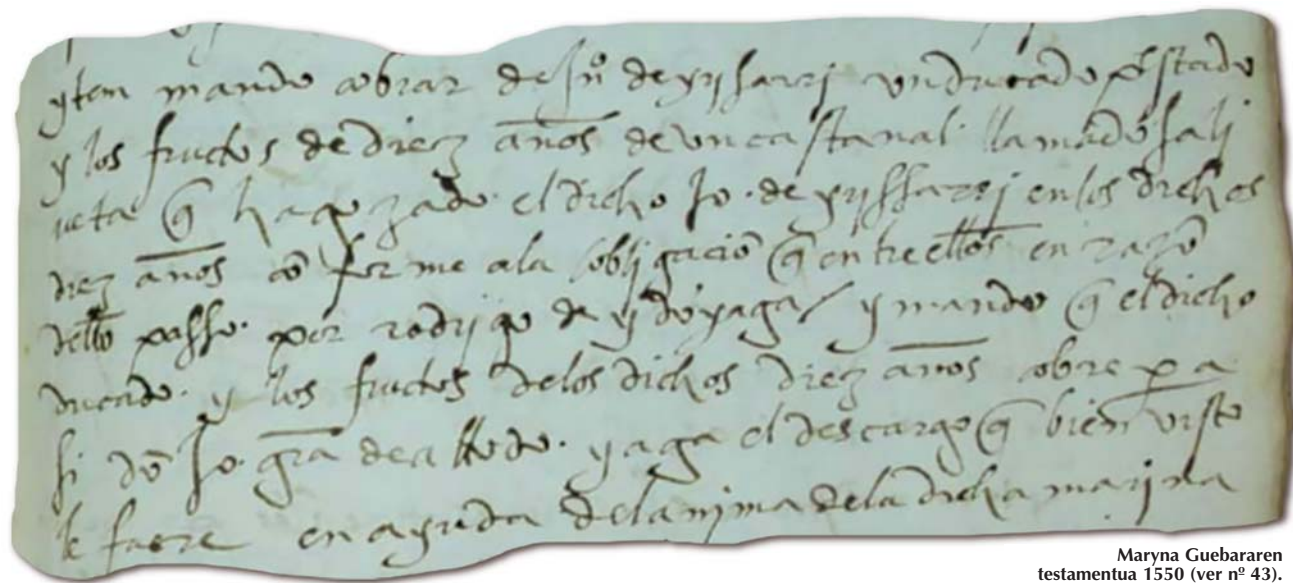 ytem mando cobrar de Jnº de yrisarri un ducado prestado
y los fructos de diez años de un castanal llamado sali
ueta q̃ ha gozado el dicho Jo. de yrissarri en los dichos
diez años cõ forme a la obligaciõ q̃ entrellos en razõ
dello passo por rodrigo de ydoyaga / y mando q̃ el dicho
ducado y los fructos delos dichos diez años cobre pa
si dõ Jo. gra de a y aga el descargo q̃ bien visto
le fuere en ayuda del anima dela dicha marina
Maryna Guebararen
testamentua 1550 (ver nº 43).